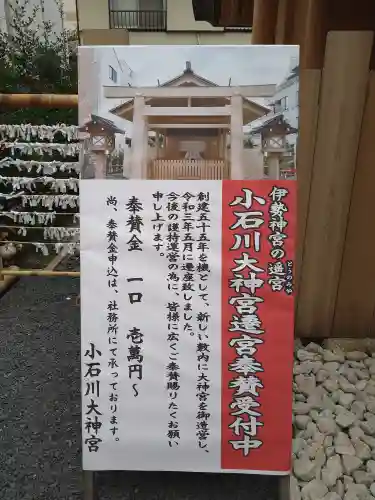 伊勢神宮の遥宮
とおのみや
小石川大神宮遷宮奉賛受付中
創建五十五年を機として、新しい敷内に大神宮を御造営し、
令和三年五月に遷座致しました。
今後の護持運営の為に、皆様に広くご奉賛賜りたくお願い
申し上げます。
奉賛金 一口 壱萬円〜
尚、奉賛金申込は、社務所にて承っております。
小石川大神宮